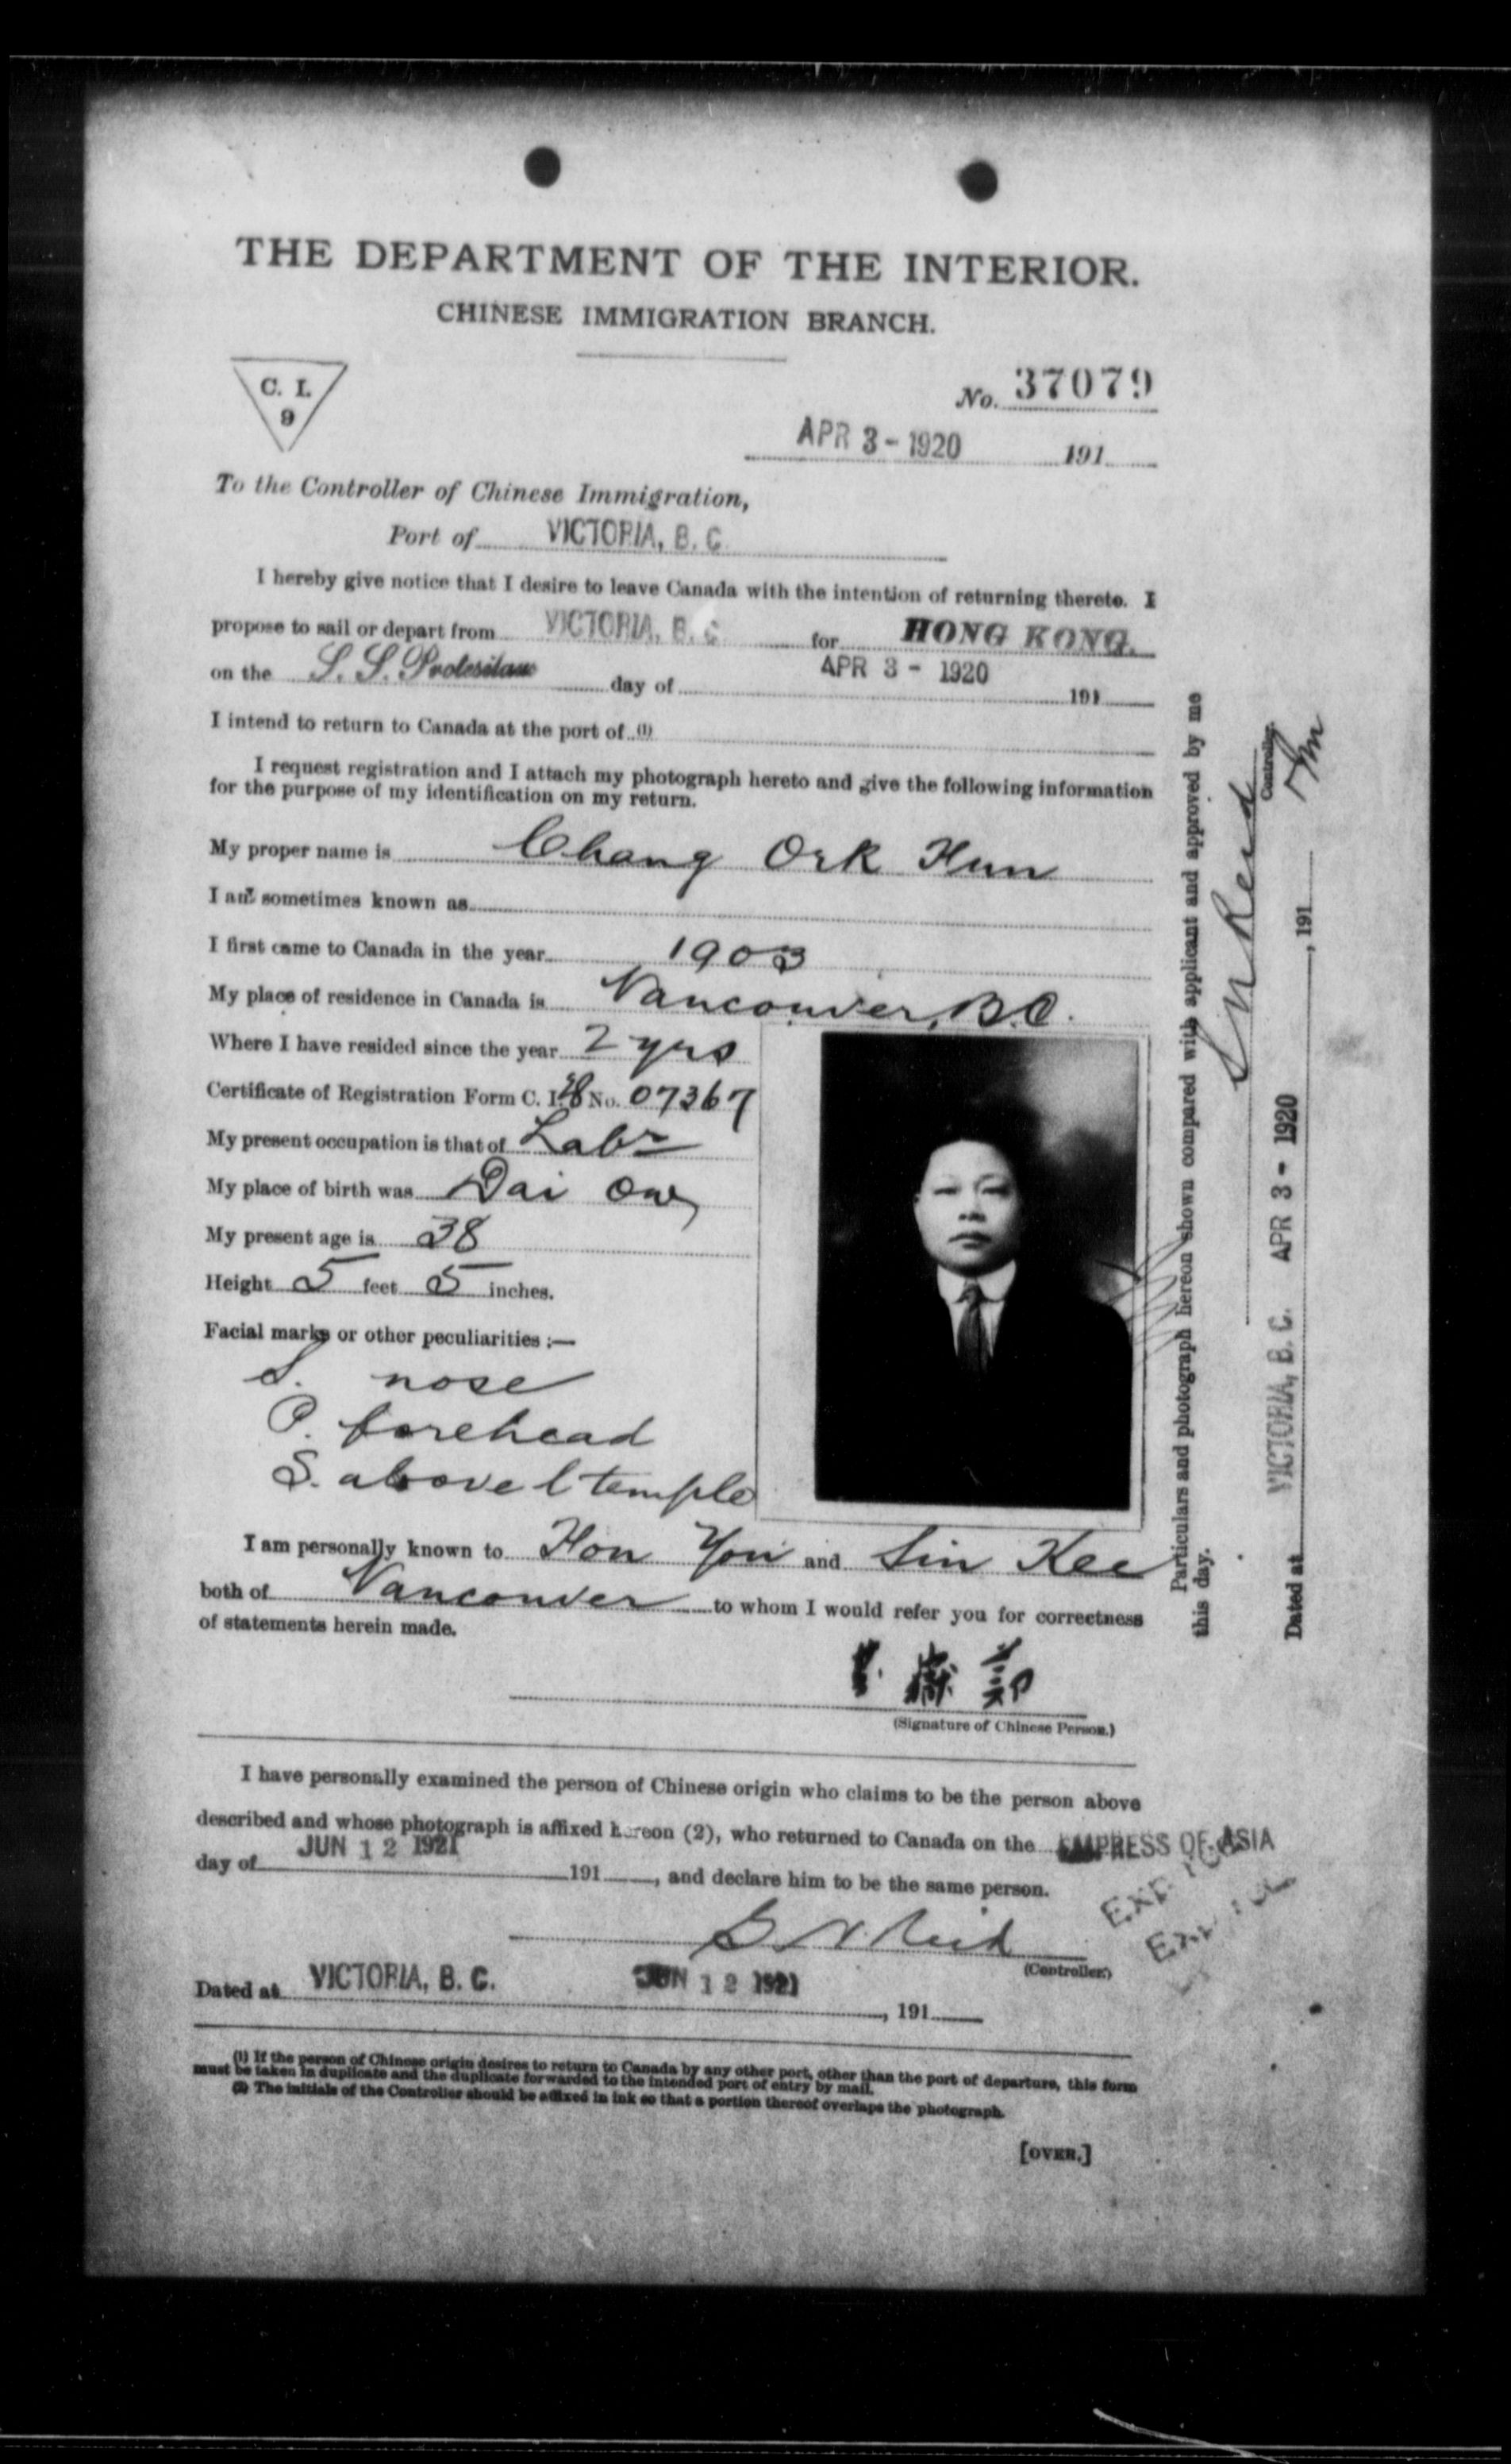 THE DEPARTMENT OF THE INTERIOR.
CHINESE IMMIGRATION BRANCH.
C. I.
9
No. 37079
APR 3 - 1920 191
To the Controller of Chinese Immigration,
Port of VICTORIA, B. C.
I hereby give notice that I desire to leave Canada with the intention of returning thereto. I
propose to sail or depart from VICTORIA, B. C. for HONG KONG.
on the S. S. Protesilaus day of APR 3 - 1920 191
I intend to return to Canada at the port of (1)
I request registration and I attach my photograph hereto and give the following information
for the purpose of my identification on my return.
My proper name is Chang Ork Hun
I am sometimes known as
I first came to Canada in the year 1903
My place of residence in Canada is Vancouver, B.C.
Where I have resided since the year 2 yrs
Certificate of Registration Form C. I. No. 07367
My present occupation is that of Labr
My place of birth was Dai Ow
My present age is 38
Height 5 feet 5 inches.
Facial marks or other peculiarities :—
S. nose
P. forehead
S. above l temple
I am personally known to Hon You and Sin Kee
both of Vancouver to whom I would refer you for correctness
of statements herein made.
(Signature of Chinese Person.)
I have personally examined the person of Chinese origin who claims to be the person above
described and whose photograph is affixed hereon (2), who returned to Canada on the EMPRESS OF ASIA
day of JUN 12 1921 191 , and declare him to be the same person.
(Controller.)
Dated at VICTORIA, B. C. JUN 12 1921 , 191
(1) If the person of Chinese origin desires to return to Canada by any other port, other than the port of departure, this form
must be taken in duplicate and the duplicate forwarded to the intended port of entry by mail.
(2) The initials of the Controller should be affixed in ink so that a portion thereof overlaps the photograph.
[OVER.]
Particulars and photograph hereon shown compared with applicant and approved by me
this day.
Controller.
Dated at VICTORIA, B. C. APR 3 - 1920 , 191